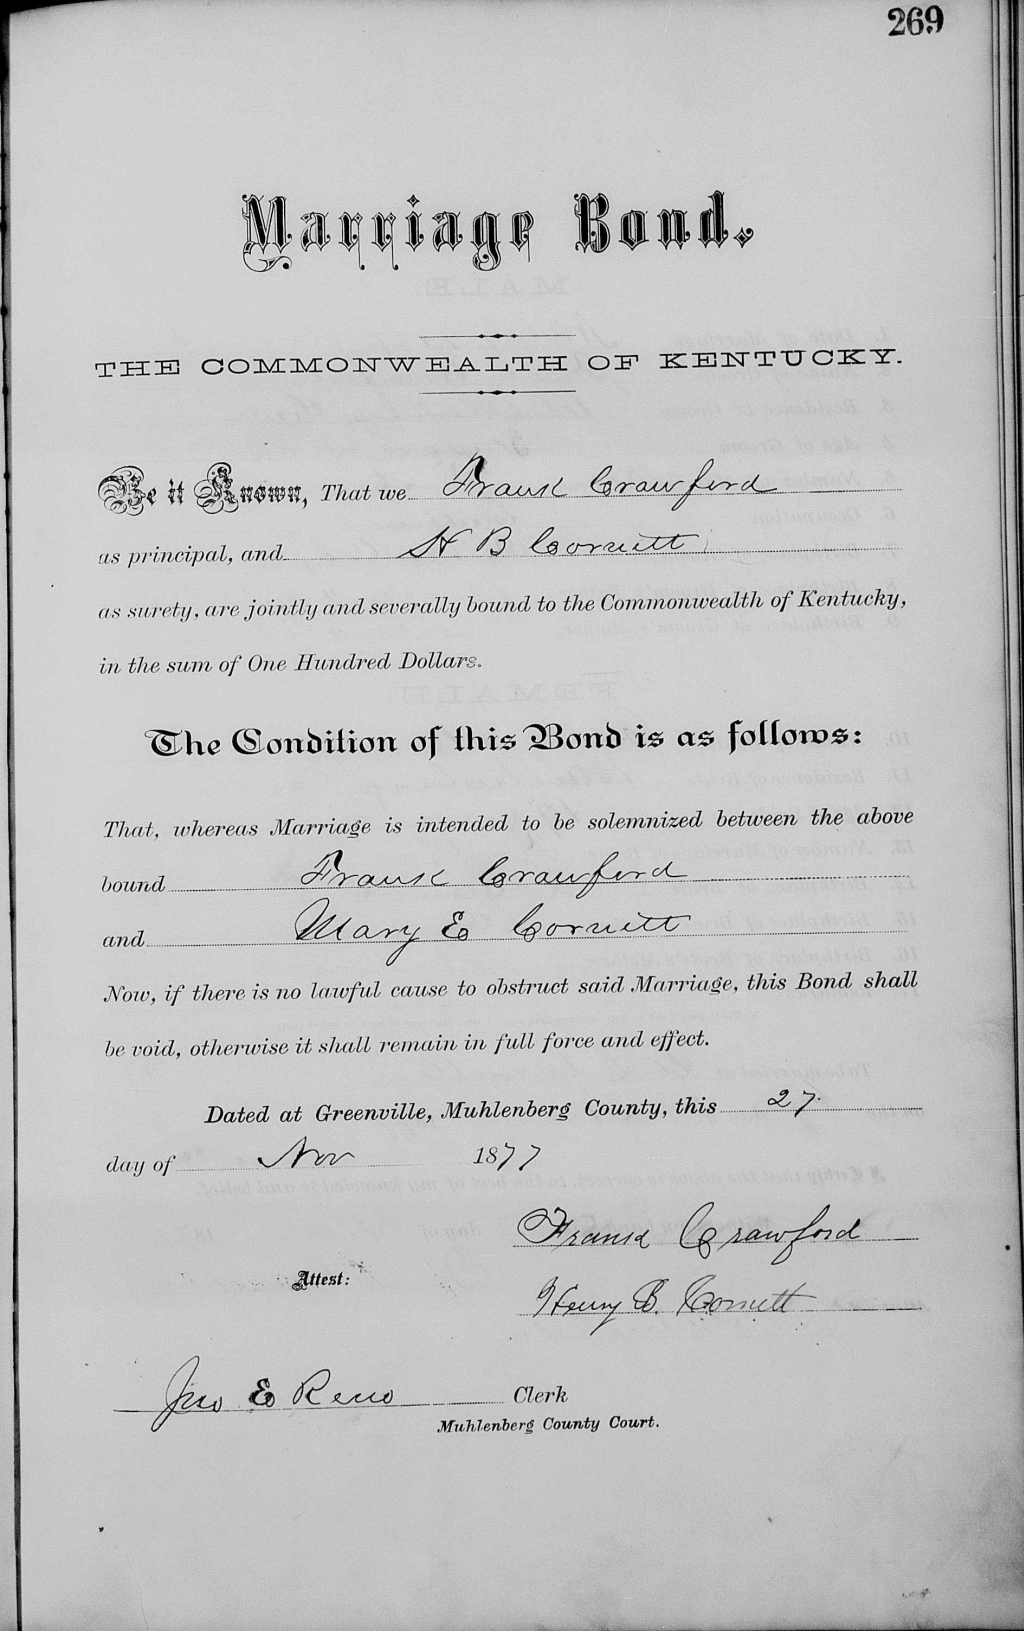 269
Marriage Bond.
THE COMMONWEALTH OF KENTUCKY.
Be it Known, That we Frank Crawford
as principal, and H B Cornett
as surety, are jointly and severally bound to the Commonwealth of Kentucky,
in the sum of One Hundred Dollars.
The Condition of this Bond is as follows:
That, whereas Marriage is intended to be solemnized between the above
bound Frank Crawford
and Mary E Cornett
Now, if there is no lawful cause to obstruct said Marriage, this Bond shall
be void, otherwise it shall remain in full force and effect.
Dated at Greenville, Muhlenberg County, this 27
day of Nov 1877
Frank Crawford
Attest:
Henry B. Cornett
Jno E Reno Clerk
Muhlenberg County Court.